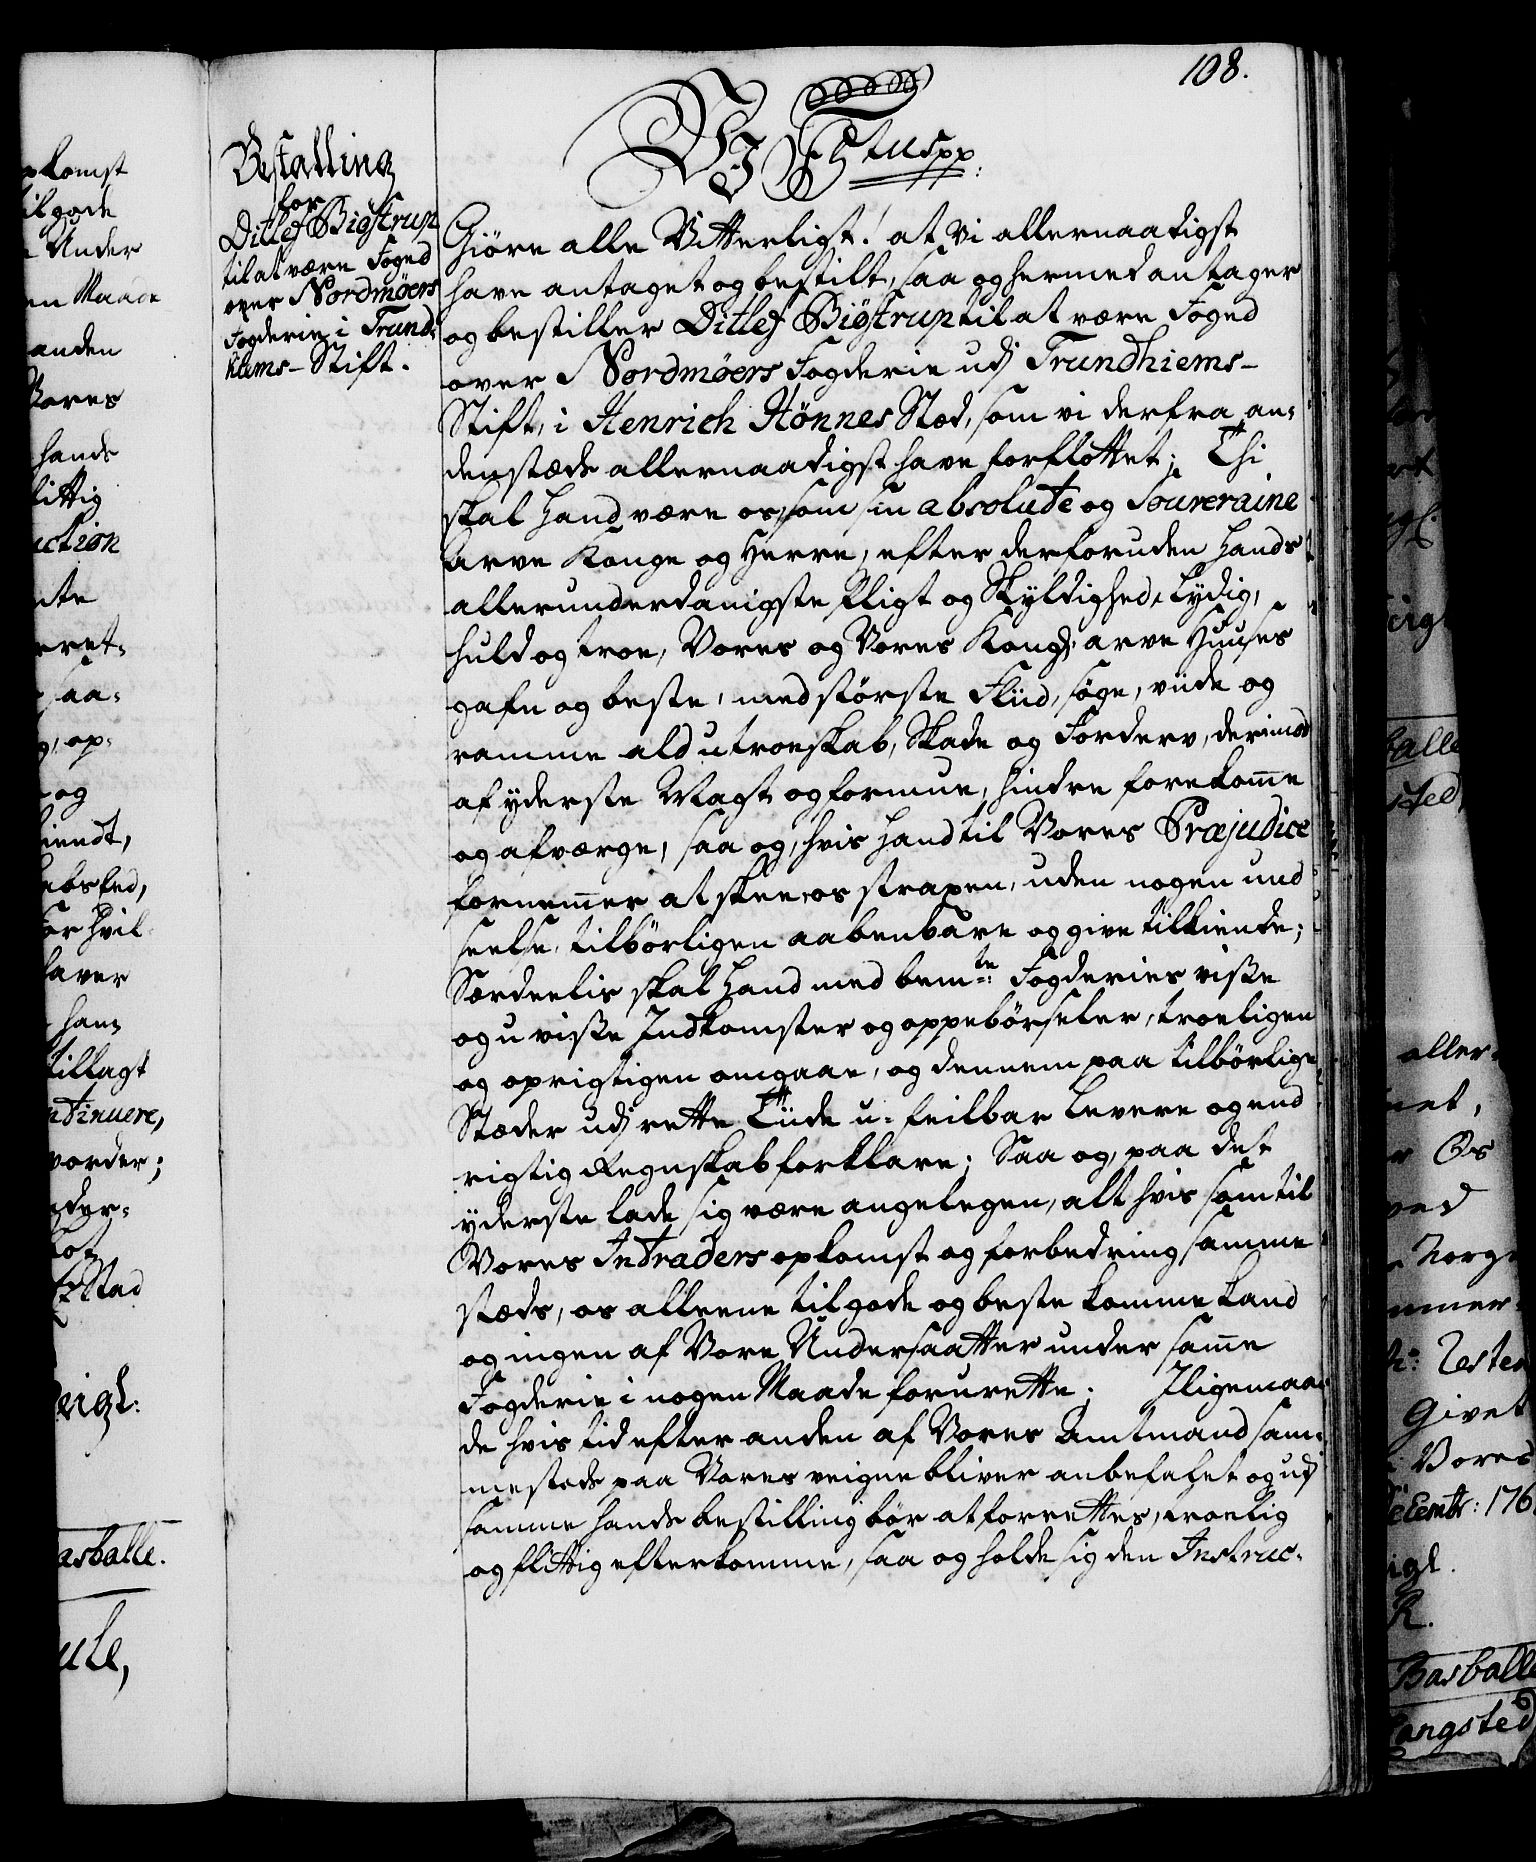 108.
Vi Ftus pp:
Bestalling
for
Ditlef Biøstrup
til at være Foged
over Nordmøers
Fogderie i Trund-
hiems-Stift.
Giøre alle Vitterligt! at Vi allernaadigst
have antaget og bestilt, saa og hermed antager
og bestiller Ditlef Biøstrup til at være Foged
over Nordmøers Fogderie udj Trundhiems-
Stift, i Henrich Hönnes Stæd, som vi derfra an-
denstæds allernaadigst have forflöttet; Thi
skal hand være os, som sin absolute og Souveraine
Arve Konge og Herre, efter derforuden Hands
allerunderdanigste Pligt og Skyldighed, Lydig,
huld og troe, Vores og Vores Kongl: arve Huuses
gafn og beste, med störste Fliid, söge, viide og
ramme ald utroeskab, Skade og Forderv, derimod
af yderste Magt og formue, hindre forekom̅e
og afværge, saa og, hvis hand til Vores Præjudice
fornem̅er at skee, os straxen, uden nogen und
seelse, tilbörligen aabenbare og give tilkiende;
Særdeelis skal hand med bemte: Fogderies visse
og u visse Indkomster og oppebörseler, troeligen
og oprigtigen omgaae, og dennem paa tilbörlige
Stæder udj rette Tiide u-feilbar levere og end
rigtig Regnskab forklare; Saa og, paa det
yderste lade sig være angelegen, alt hvis som til
Vores Intraders opkomst og forbedring samme
stæds, os alleene til gode og beste komme kand
og ingen af Vore Undersaatter under sam̅e
Fogderie i nogen Maade forurette. Iligemaa-
de hvis tid efter anden af Vores Amtmand sam-
mesteds paa Vores veigne bliver anbefahet og udj
samme hands bestilling bör at forrettes, troelig
og flittig efterkomme, saa og holde sig den Instruc-